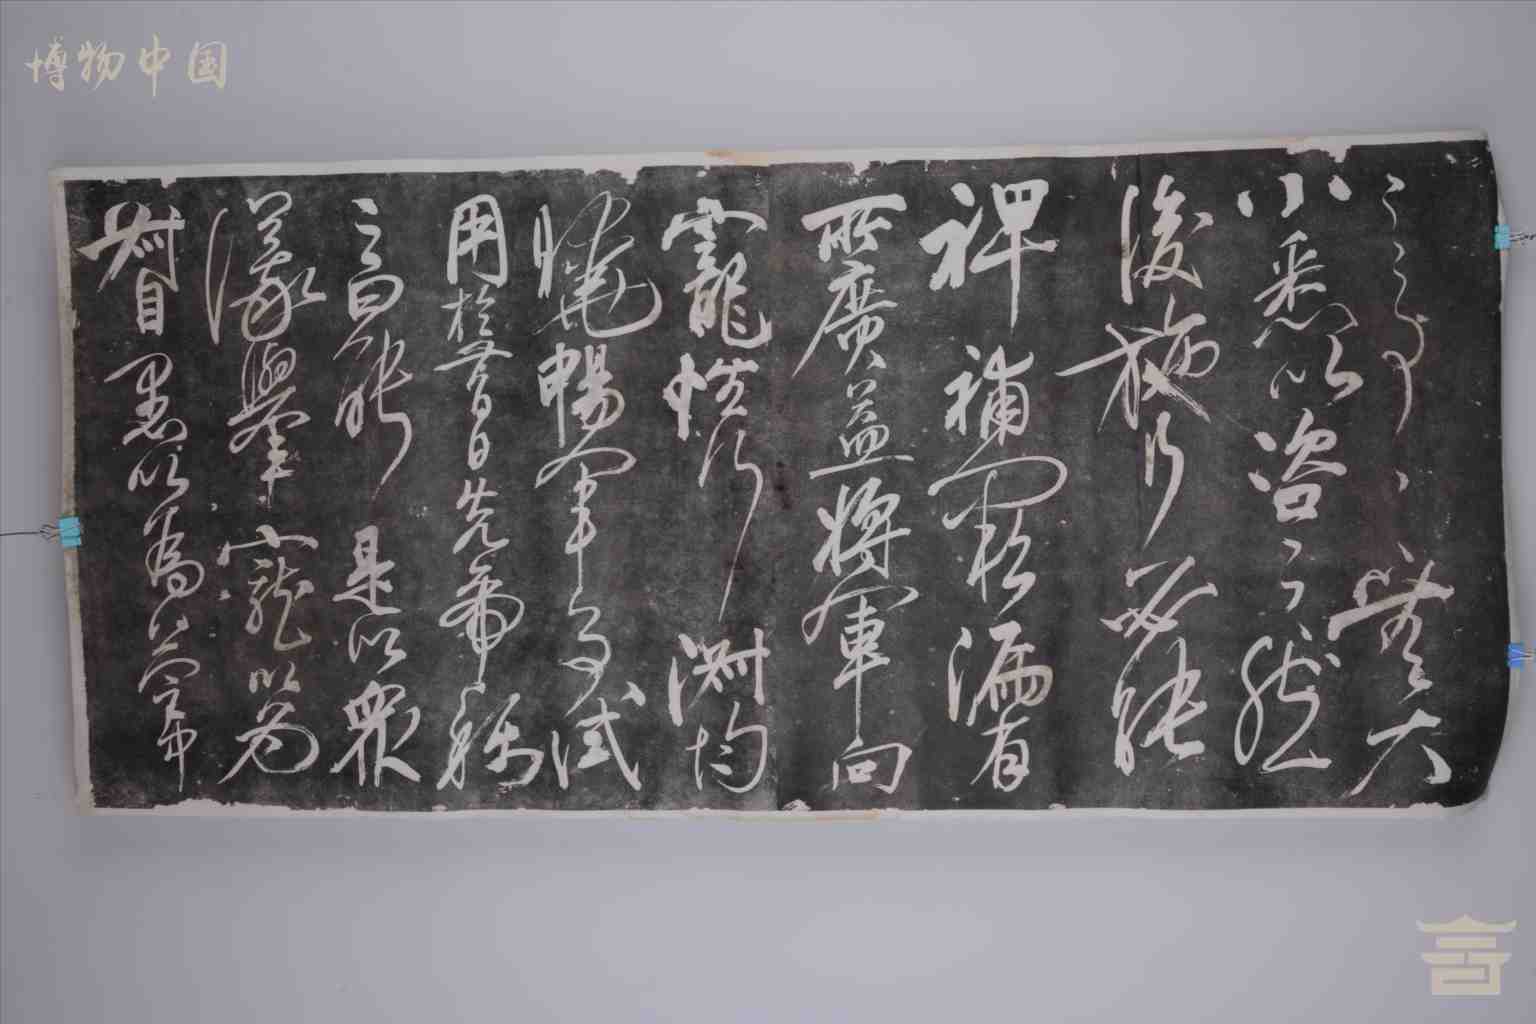 博物中国
之之事〻無大
小悉以咨之然
後施行必能
裨補闕漏有
所廣益將軍向
寵性行淑均
曉暢軍事試
用於昔日先帝稱
之曰能是以眾
議舉寵以為
督愚以為營中